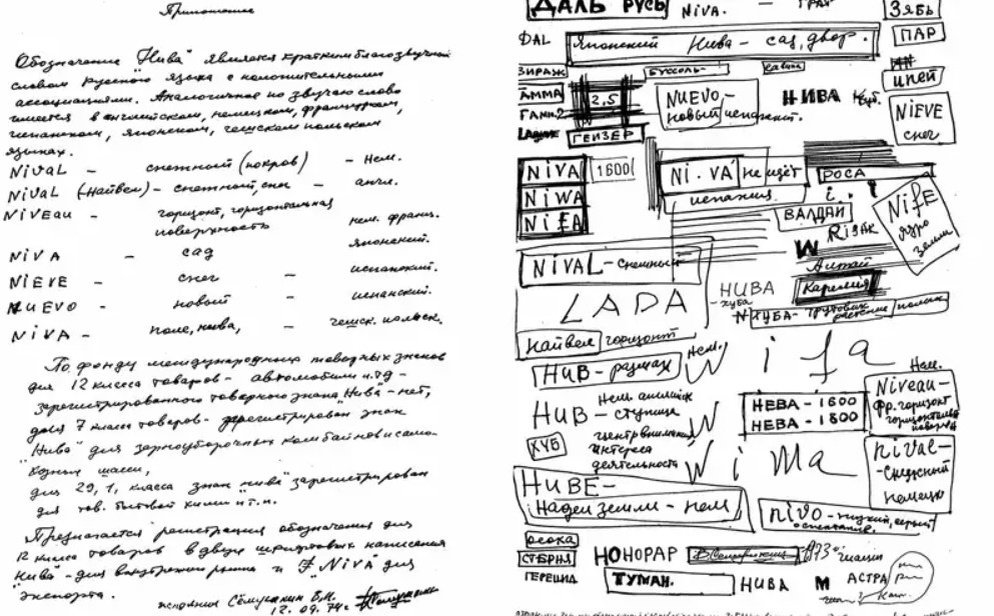 Приложение
Обозначение "Нива" является кратким благозвучным
словом русского языка с положительными
ассоциациями. Аналогичное по звучанию слово
имеется в английском, немецком, французском,
испанском, японском, чешском польском
языках.
NiVaL - снежный (покров) - Нем.
NiVaL (найвел) - снежный, сны - англ.
NiVEau - горизонт, горизонтальная
поверхность нем. франц.
NiVA - сад японский.
NiEVE - снег - испанский.
NUEVO - новый - испанский.
NiVA - поле, нива, - чешск. польск.
По фонду международных товарных знаков
для 12 класса товаров - автомобили и.т.д -
зарегистрированного товарного знака "Нива" - нет,
для 7 класса товаров - зарегистрирован знак
"Нива" для зерноуборочных комбайнов и само-
ходных шасси,
для 29, 1, класса знак "нива" зарегистрирован
для тов. бытовой химии и т.п.
Предлагается регистрация обозначения для
12 класса товаров в двух шрифтовых написаниях
"Нива" - для внутреннего рынка и "NiVA" для
"экспорта".
исполнил Сёмушкин В.М.
12.09.74
ДАЛЬ РУСЬ NiVA. - ЗЯБЬ
DAL Японский Нива - сад, двор. ПАР
ЗИРАЖ БУССОЛЬ
ГАММА 2,5 NUEVO - НИВА ИПЕЙ
новый испанский. NiEVE
ГЕЙЗЕР снег
NiVA 1600 Ni.VA не идёт РОСА
NiWA испания
NiFA ВАЛДАЙ NiFE
ядро
земли
W
NiVAL - снежный Алтай
НИВА Карелия
LADA хуба
Найвел горизонт
НИВ - нем. W i f a
НЕВА - 1600 Niveau -
НЕВА - 1800 фр. горизонт
НИВ - ступица
ХУБ центр внимания
интереса W i Ma niVal -
деятельность снежный
немецк
НИВЕ -
Надел земли - нем nivo - низкий, серый
осока
СТЕРНЯ НОНОРАР
ПЕРЕЦИД ТУМАН. НИВА М АСТРА